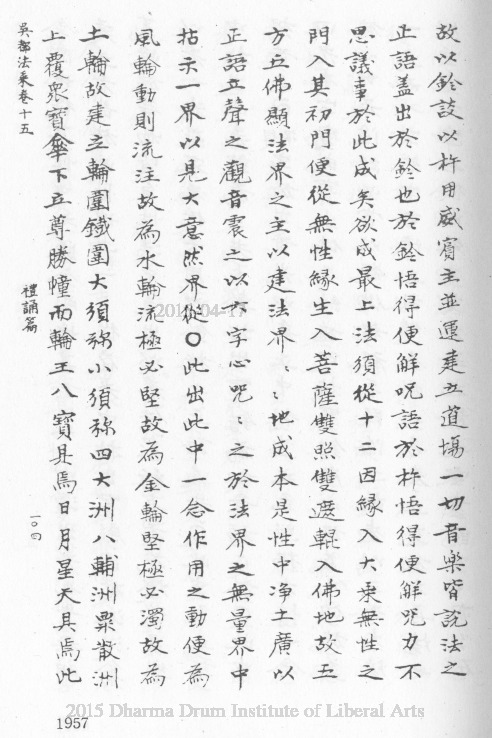 故以鈴談以杵用威賓主並運建立道場一切音樂皆說法之
正語蓋出於鈴也於鈴悟得便解咒語於杵悟得便解咒力不
思議事於此成矣欲成最上法須從十二因緣入大乘無性之
門入其初門便從無性緣生入菩薩雙照雙遮輥入佛地故五
方立佛顯法界之主以建法界〻〻地成本是性中淨土廣以
正語立聲之觀音震之以六字心咒〻之於法界之無量界中
拈示一界以見大意然界從〇此出此中一念作用之動便為
風輪動則流注故為水輪流極必堅故為金輪堅極必濁故為
土輪故建立輪圍鐵圍大須彌小須彌四大洲八輔洲粟散洲
上覆眾寶傘下立尊勝幢而輪王八寶具焉日月星天具焉此
吳都法乘卷十五
禮誦篇
一〇四
1957
2015 Dharma Drum Institute of Liberal Arts